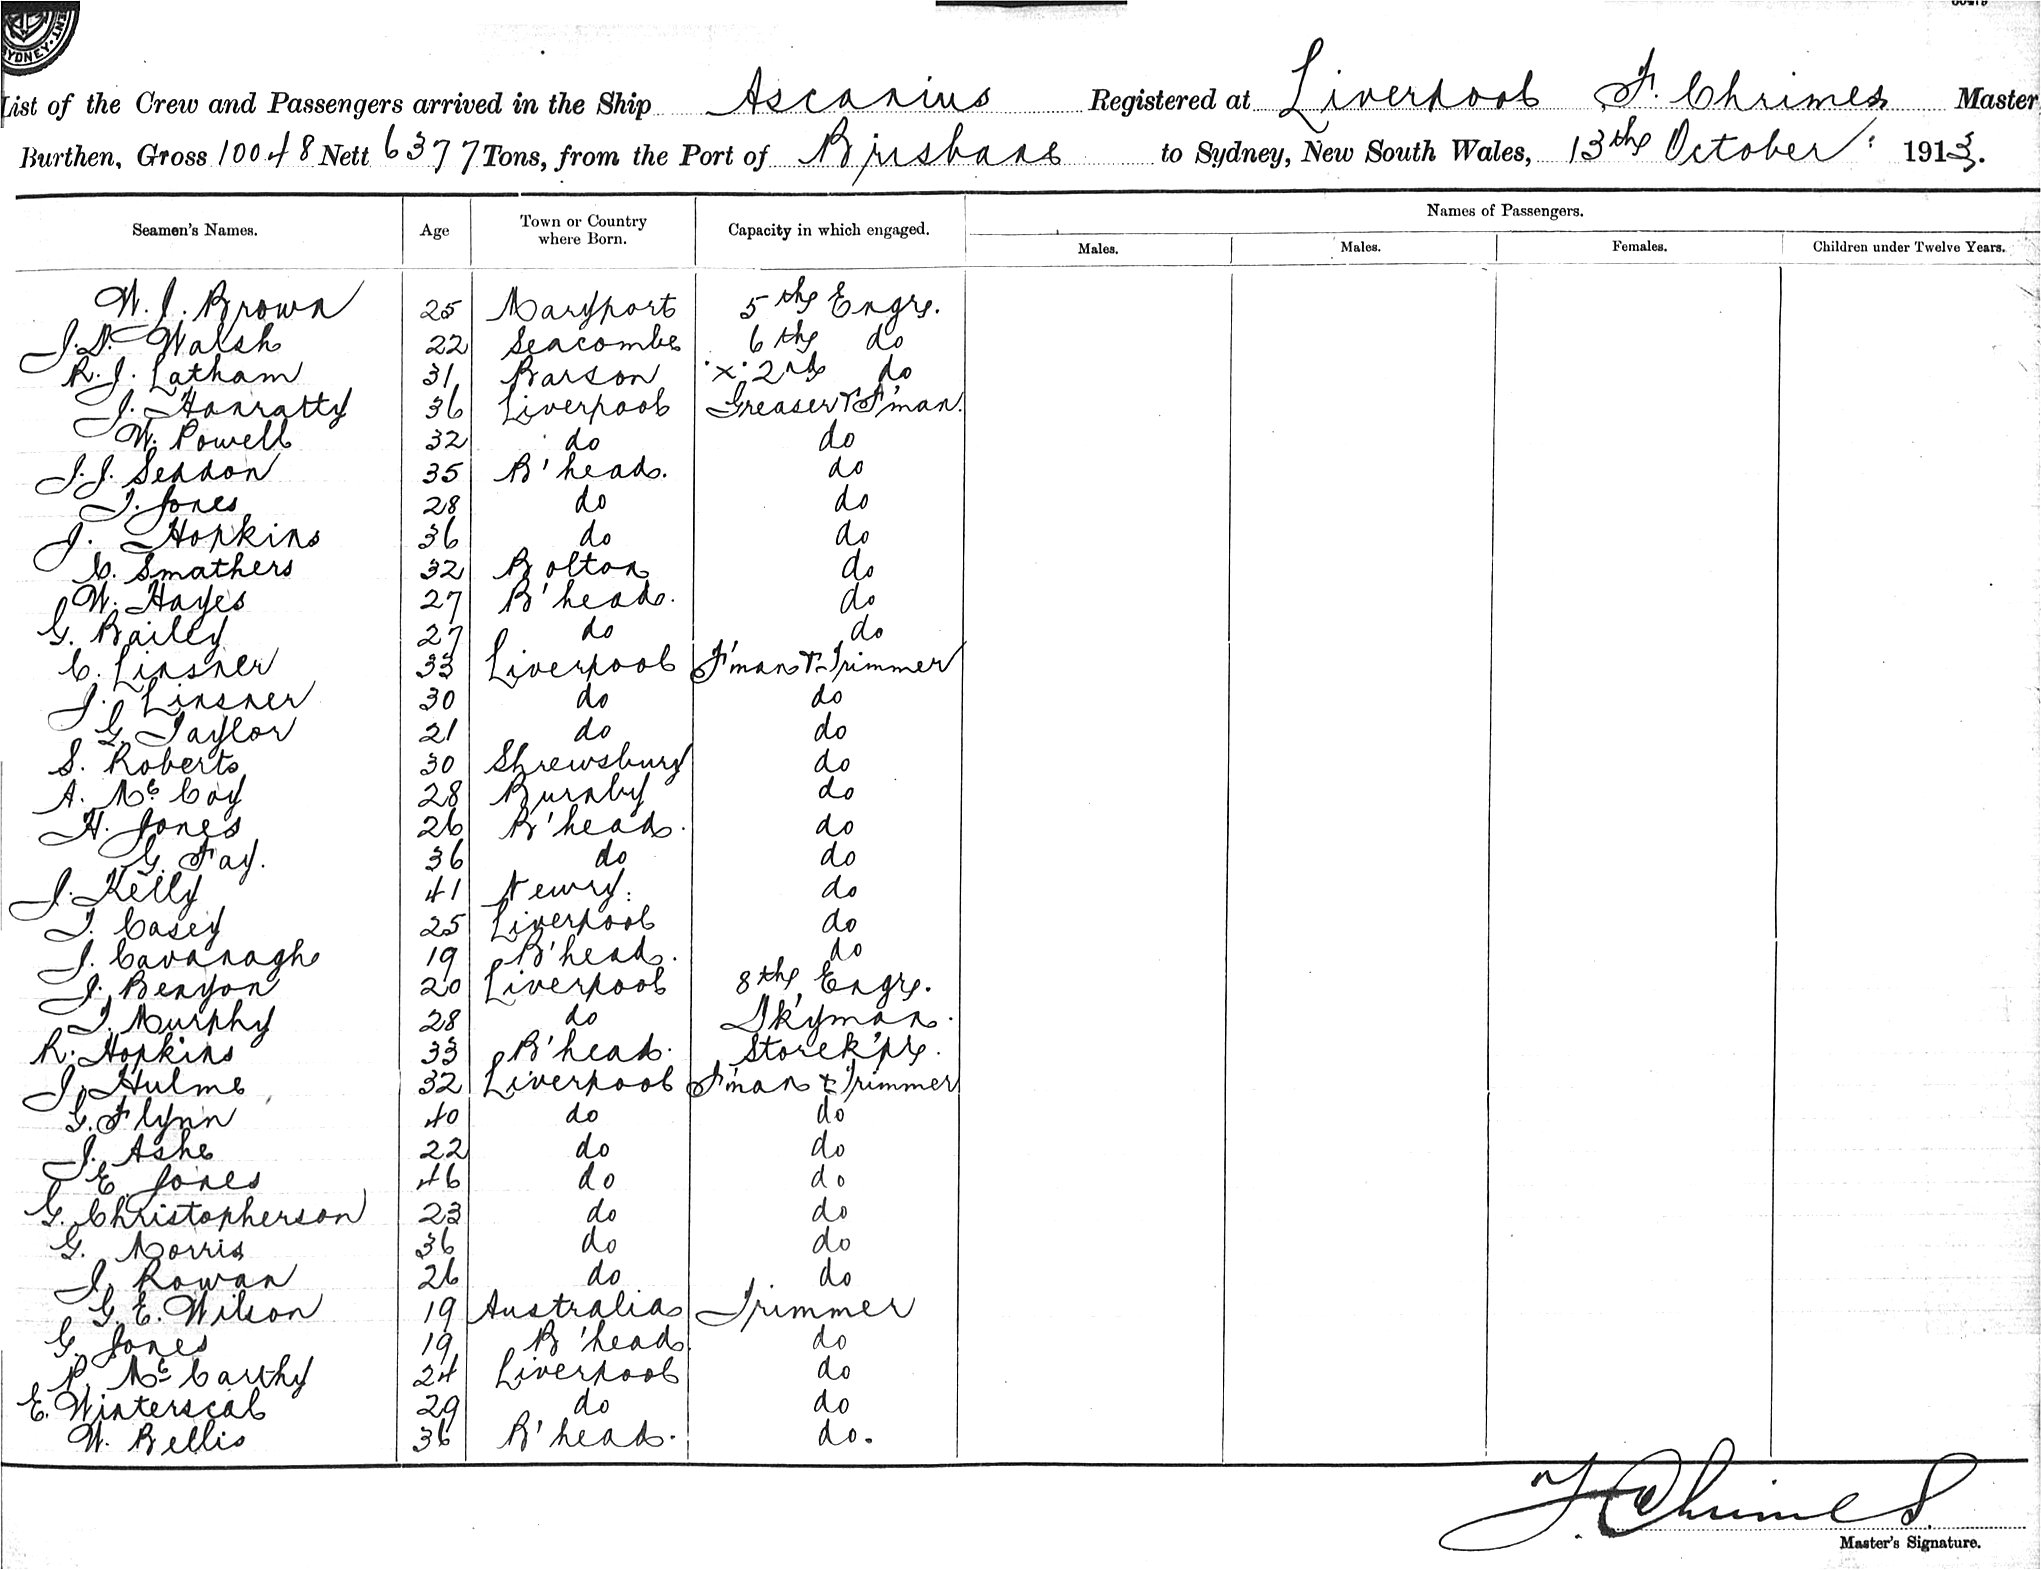 SYDNEY
List of the Crew and Passengers arrived in the Ship Ascanius Registered at Liverpool F. Chrimes Master
Burthen, Gross 10048 Nett 6377 Tons, from the Port of Brisbane to Sydney, New South Wales, 13th October 1913.
Names of Passengers.
Seamen's Names. Age Town or Country where Born. Capacity in which engaged. Males. Males. Females. Children under Twelve Years.
W. J. Brown 25 Maryport 5th Engr.
J. D. Walsh 22 Seacombe 6th do
R. J. Latham 31 Barson x 2nd do
J. Hanratty 36 Liverpool Greaser & F'man.
W. Powell 32 do do
J. J. Seddon 35 B'head. do
T. Jones 28 do do
J. Hopkins 36 do do
C. Smathers 32 Bolton do
W. Hayes 27 B'head. do
G. Bailey 27 do do
C. Linsner 33 Liverpool F'man & Trimmer
J. Linsner 30 do do
G. Taylor 21 do do
S. Roberts 30 Shrewsbury do
A. McCoy 28 Burnby do
H. Jones 26 B'head. do
G. Fay. 36 do do
J. Kelly 41 Newry. do
T. Casey 25 Liverpool do
J. Cavanagh 19 B'head. do
J. Benyon 20 Liverpool 8th Engr.
T. Murphy 28 do Dkyman.
R. Hopkins 33 B'head. Storek'pr.
J. Hulme 32 Liverpool F'man & Trimmer
G. Flynn 40 do do
J. Ashe 22 do do
E. Jones 46 do do
G. Christopherson 23 do do
G. Morris 36 do do
J. Rowan 26 do do
G. E. Wilson 19 Australia Trimmer
G. Jones 19 B'head do
P. McCarthy 24 Liverpool do
E. Winterscal 29 do do
W. Bellis 36 B'head. do.
F. Chrimes
Master's Signature.